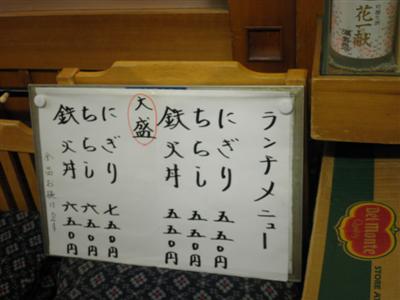 ランチメニュー
にぎり 五五〇円
ちらし 五五〇円
鉄火丼 五五〇円
大盛
にぎり 七五〇円
ちらし 六五〇円
鉄火丼 六五〇円
花一献
Del Monte
Quality
STORE A